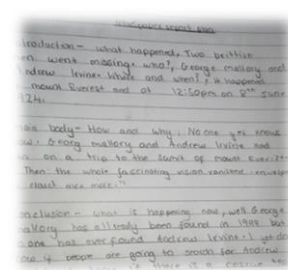 Newspaper report plan
troduction - what happened, Two brittish
en went missing. who?, George mallory and
ndrew Irvine. Where and when?, it happened
mount Everest and at 12:50pm on 8th June
924.
ain body - How and why. No one yet knows
ow. Georg mallory and Andrew Irvine had
on a trip to the sumit of mount Everest
Then the whole fascinating vision vanished
cloud once more."
onclusion - what is happening now, well George
mallory has allready been found in 1999 but
one has ever found Andrew Irvine. I yet do
now 4 people are going to search for Andrew
there is a rescue